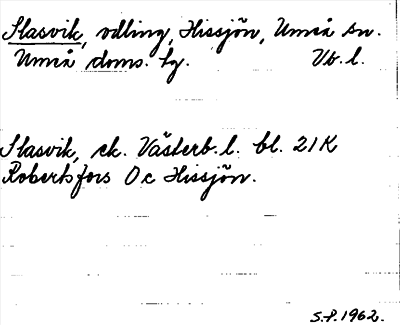 Slasvik, odling, Hissjön, Umeå sn.
Umeå doms. hg. Vb. l.
Slasvik, ek. Västerb. l. bl. 21K
Robertsfors Oc Hissjön.
S.P. 1962.